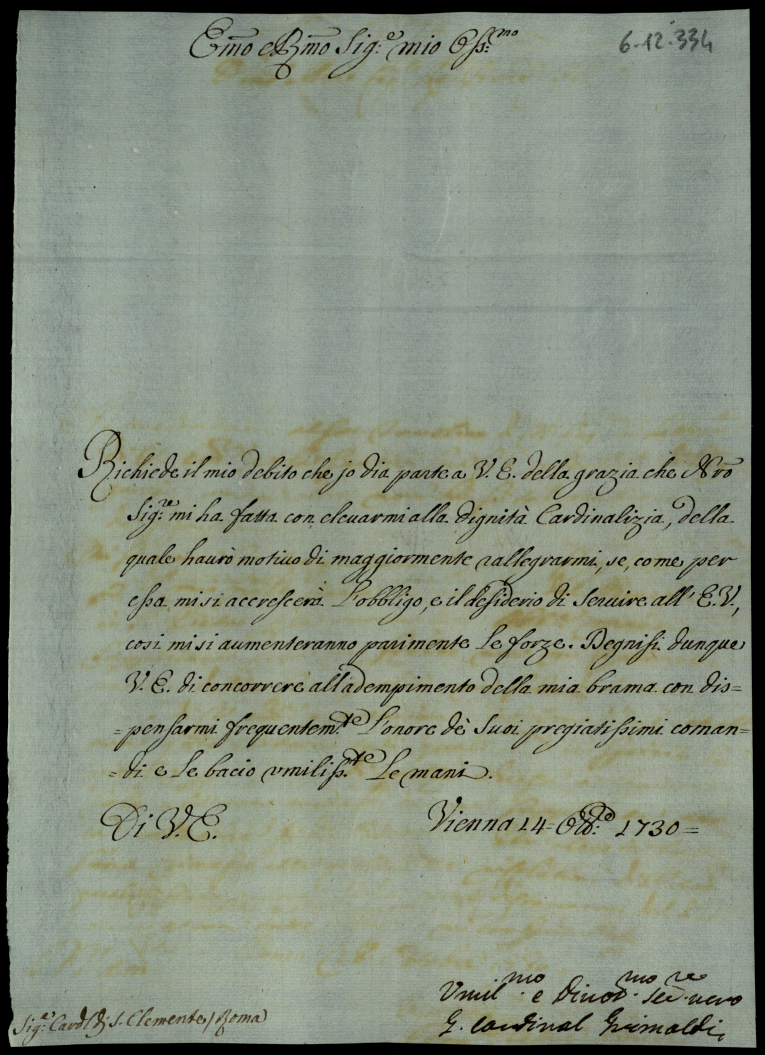 Emo e Rmo Sig.e mio Oss.mo
6-12-334
Richiede il mio debito che jo dia parte a V. E. della grazia che Nro
Sig.re mi ha fatta con elevarmi alla dignità Cardinalizia, della
quale haurò motivo di maggiormente rallegrarmi, se, come per
essa mi si accrescerà l'obbligo, e il desiderio di seruire all' E. V.,
cosi mi si aumenteranno parimente le forze. Degnisi dunque
V. E. di concorrere all'adempimento della mia brama con dis=
=pensarmi frequentem.te l'onore de Suoi pregiatissimi coman=
=di e le bacio vmiliss.te le mani.
Di V. E.
Vienna 14= Ott.e 1730=
Vmil.mo e Diuot.mo Ser.re uero
G. Cardinal Grimaldi
Sig.e Card. di S. Clemente / Roma